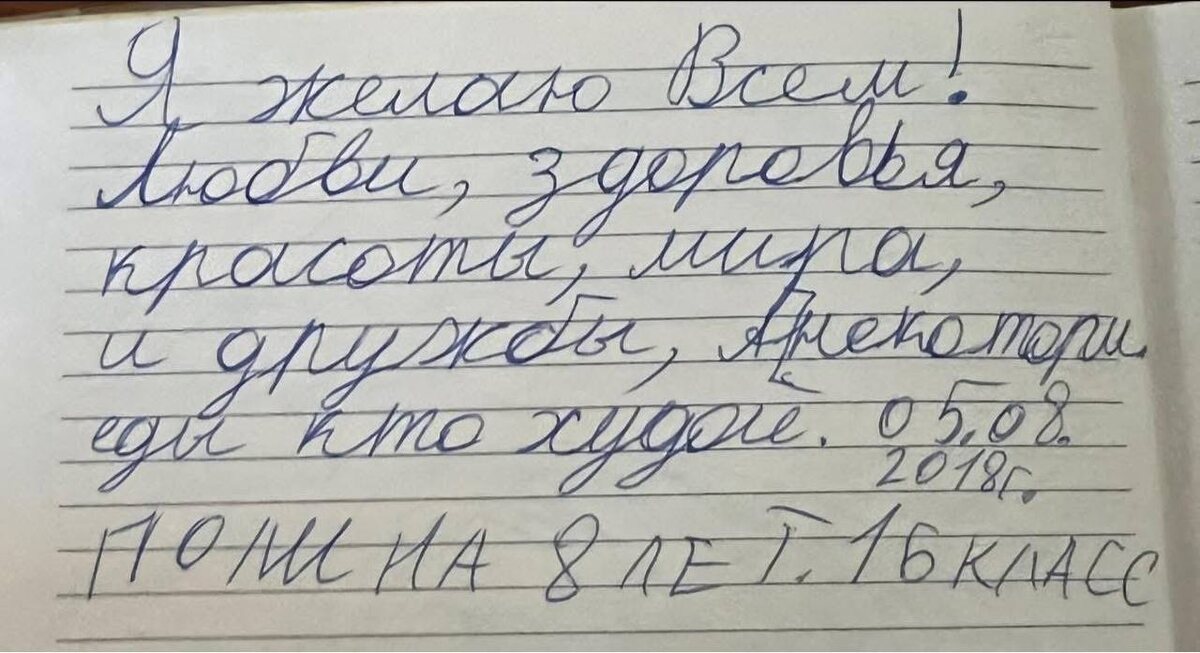 Я желаю Всем!
Любви, здоровья,
красоты, мира,
и дружбы, А некотори
еды кто худой. 05.08.
2018г.
ПОЛИНА 8 ЛЕТ. 1Б КЛАСС